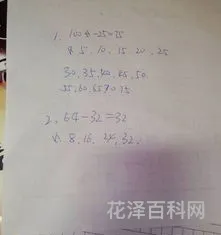 1. 100-25=75
5、10、15、20、25
30、35、40、45、50
55、60、65、70、75
2、64-32=32
8、16、24、32、
花泽百科网